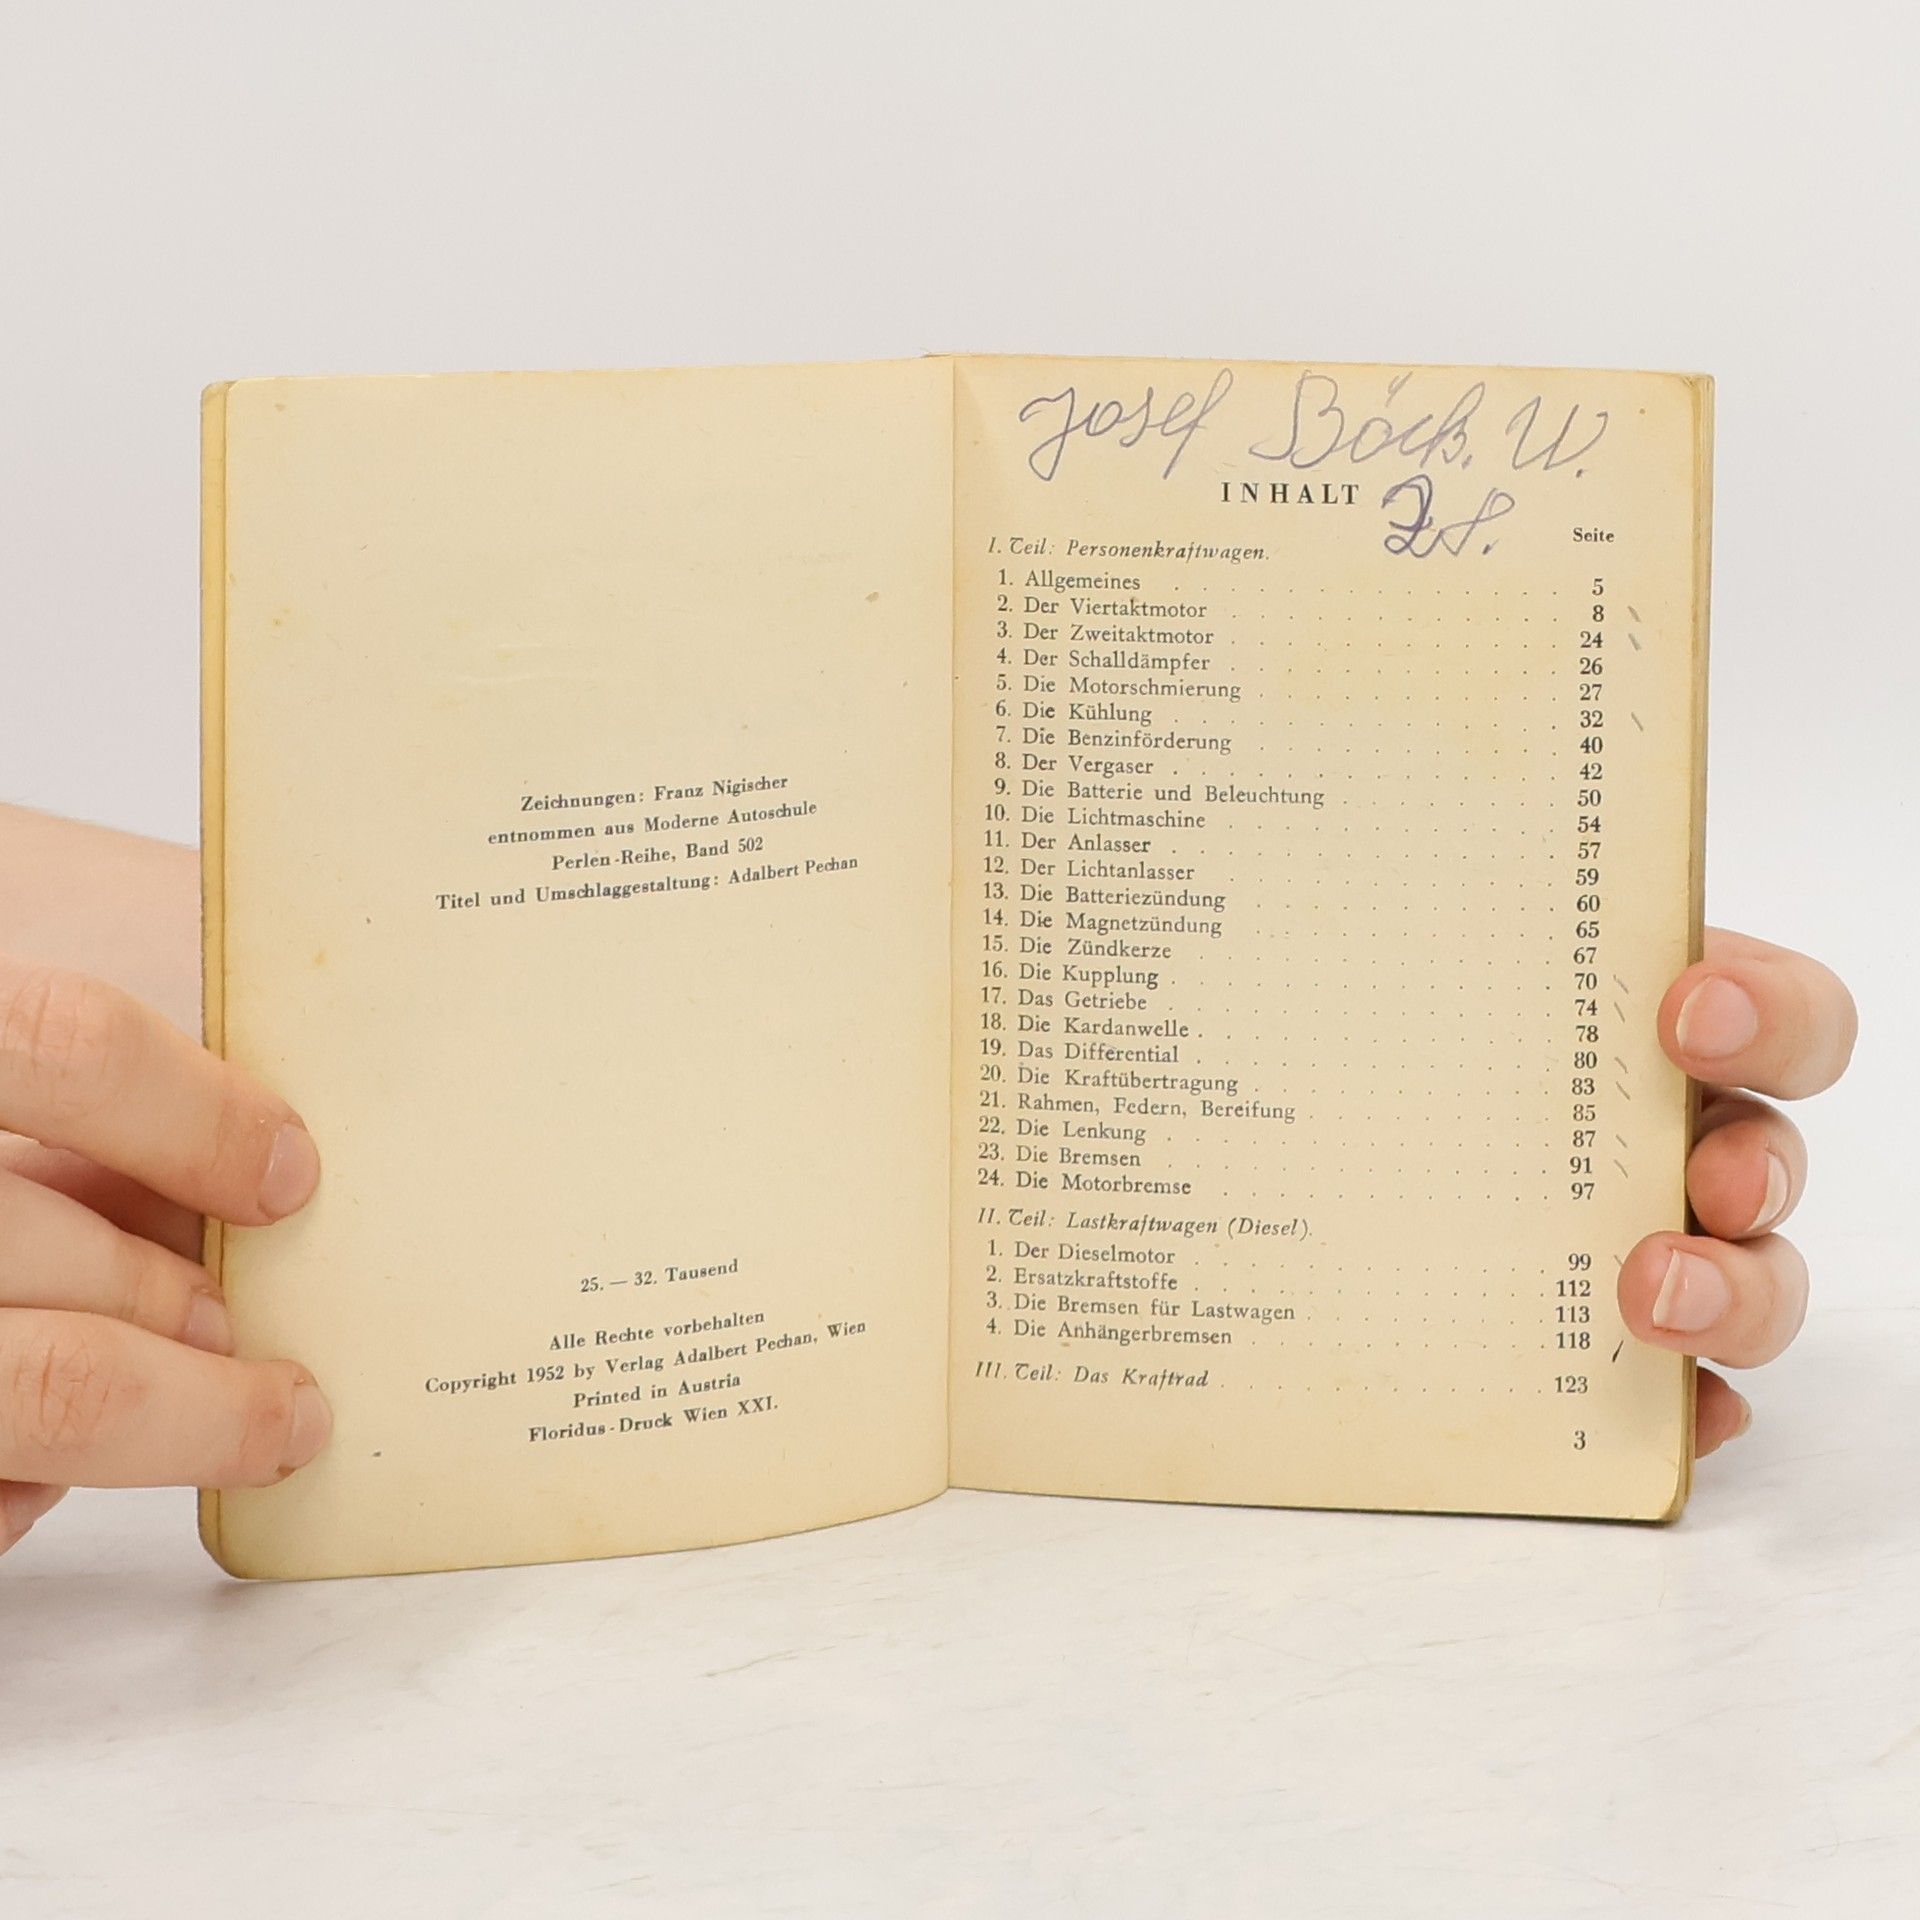 Zeichnungen: Franz Nigischer
entnommen aus Moderne Autoschule
Perlen-Reihe, Band 502
Titel und Umschlaggestaltung: Adalbert Pechan
25. — 32. Tausend
Alle Rechte vorbehalten
Copyright 1952 by Verlag Adalbert Pechan, Wien
Printed in Austria
Floridus-Druck Wien XXI.
Josef Böck. W.
INHALT
Seite
I. Teil: Personenkraftwagen.
1. Allgemeines . . . . . . . . . . . . . . 5
2. Der Viertaktmotor . . . . . . . . . . . . 8
3. Der Zweitaktmotor . . . . . . . . . . . . 24
4. Der Schalldämpfer . . . . . . . . . . . . 26
5. Die Motorschmierung . . . . . . . . . . . 27
6. Die Kühlung . . . . . . . . . . . . . . 32
7. Die Benzinförderung . . . . . . . . . . . 40
8. Der Vergaser . . . . . . . . . . . . . . 42
9. Die Batterie und Beleuchtung . . . . . . . . 50
10. Die Lichtmaschine . . . . . . . . . . . . 54
11. Der Anlasser . . . . . . . . . . . . . . 57
12. Der Lichtanlasser . . . . . . . . . . . . 59
13. Die Batteriezündung . . . . . . . . . . . 60
14. Die Magnetzündung . . . . . . . . . . . 65
15. Die Zündkerze . . . . . . . . . . . . . 67
16. Die Kupplung . . . . . . . . . . . . . . 70
17. Das Getriebe . . . . . . . . . . . . . . 74
18. Die Kardanwelle . . . . . . . . . . . . . 78
19. Das Differential . . . . . . . . . . . . . 80
20. Die Kraftübertragung . . . . . . . . . . . 83
21. Rahmen, Federn, Bereifung . . . . . . . . . 85
22. Die Lenkung . . . . . . . . . . . . . . 87
23. Die Bremsen . . . . . . . . . . . . . . 91
24. Die Motorbremse . . . . . . . . . . . . 97
II. Teil: Lastkraftwagen (Diesel).
1. Der Dieselmotor . . . . . . . . . . . . . 99
2. Ersatzkraftstoffe . . . . . . . . . . . . . 112
3. Die Bremsen für Lastwagen . . . . . . . . . 113
4. Die Anhängerbremsen . . . . . . . . . . . 118
III. Teil: Das Kraftrad . . . . . . . . . . . . 123
3